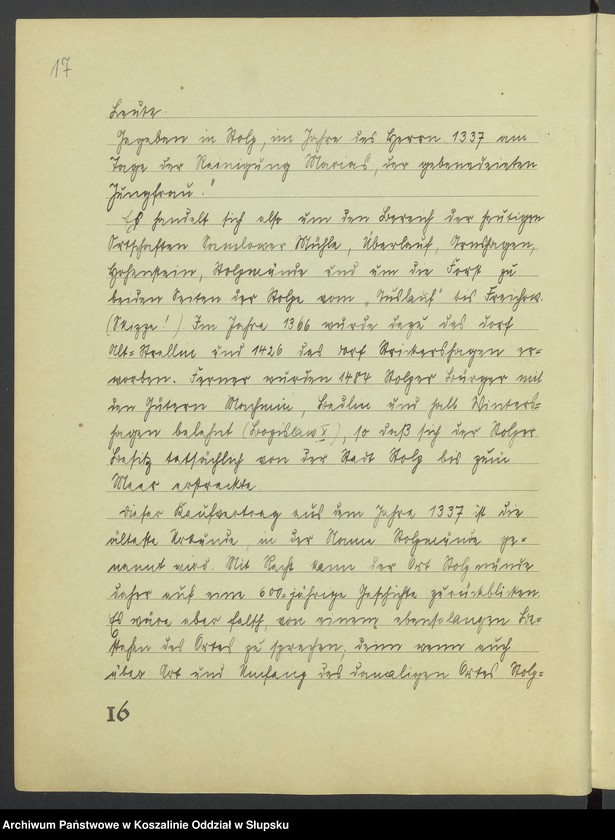 17
Leute.
Gegeben in Stolp, im Jahre des Herrn 1337 am
Tage der Reinigung Marias, der gebenedeieten
Jungfrau."
Es handelt sich also um den Bereich der heutigen
Ortschaften Sanskower Mühle, Überlauf, Arnshagen,
Hohenstein, Stolpmünde und um die Forst zu
beiden Seiten der Stolpe vom „Auslauf" bis Freichow.
(Skizze!) Im Jahre 1366 wurde dazu das Dorf
Alt-Strellin und 1426 das Dorf Strickershagen er-
worben. Ferner wurden 1484 Stolper Bürger mit
den Gütern Machmin, Bedlin und halb Winters-
hagen belehnt (Bogislaw X), so daß sich der Stolper
Besitz tatsächlich von der Stadt Stolp bis zum
Meer erstreckte.
Dieser Kaufvertrag aus dem Jahre 1337 ist die
älteste Urkunde, in der Name Stolpmünde ge-
nannt wird. Mit Recht kann der Ort Stolpmünde
daher auf eine 600-jährige Geschichte zurückblicken.
Es wäre aber falsch, von einem ebensolangen Be-
stehen des Ortes zu sprechen, denn wenn auch
über Art und Umfang des damaligen Ortes Stolp-
16
Archiwum Państwowe w Koszalinie Oddział w Słupsku